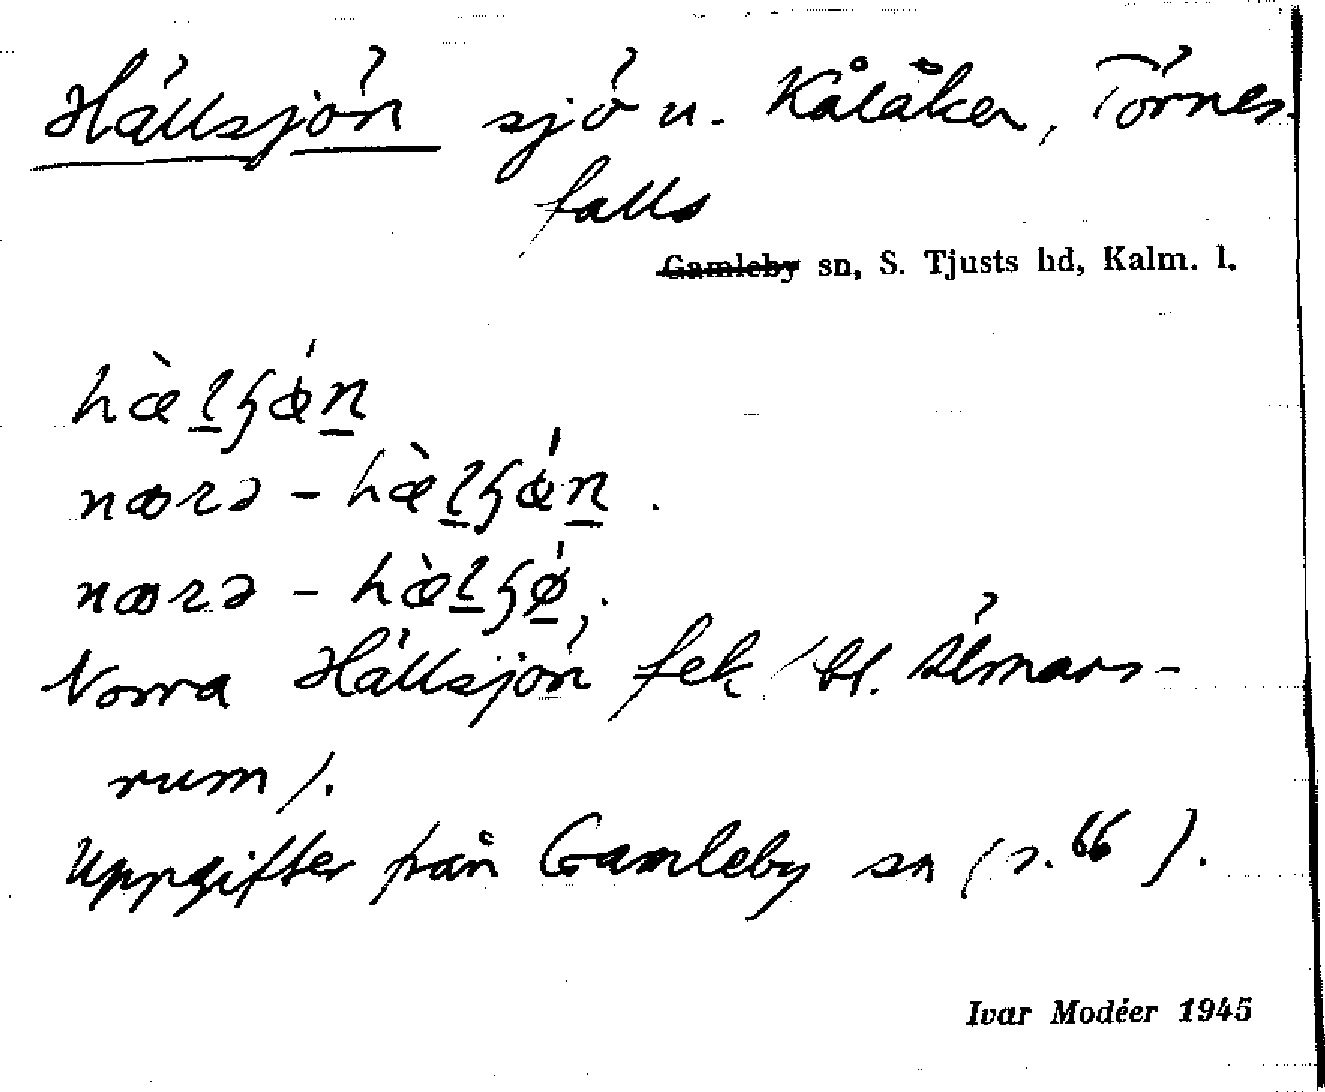 Hällsjön sjö u. Kålåker, Törnes-
falls
Gamleby sn, S. Tjusts hd, Kalm. l.
hæ̀lʃǿn
nɷrə – hæ̀lʃǿn.
nɷrə – hæ̀lʃǿ,.
Norra Hällsjön fek / bl. Älmars-
rum /.
Uppgifter från Gamleby sn (s. 66 ).
Ivar Modéer 1945